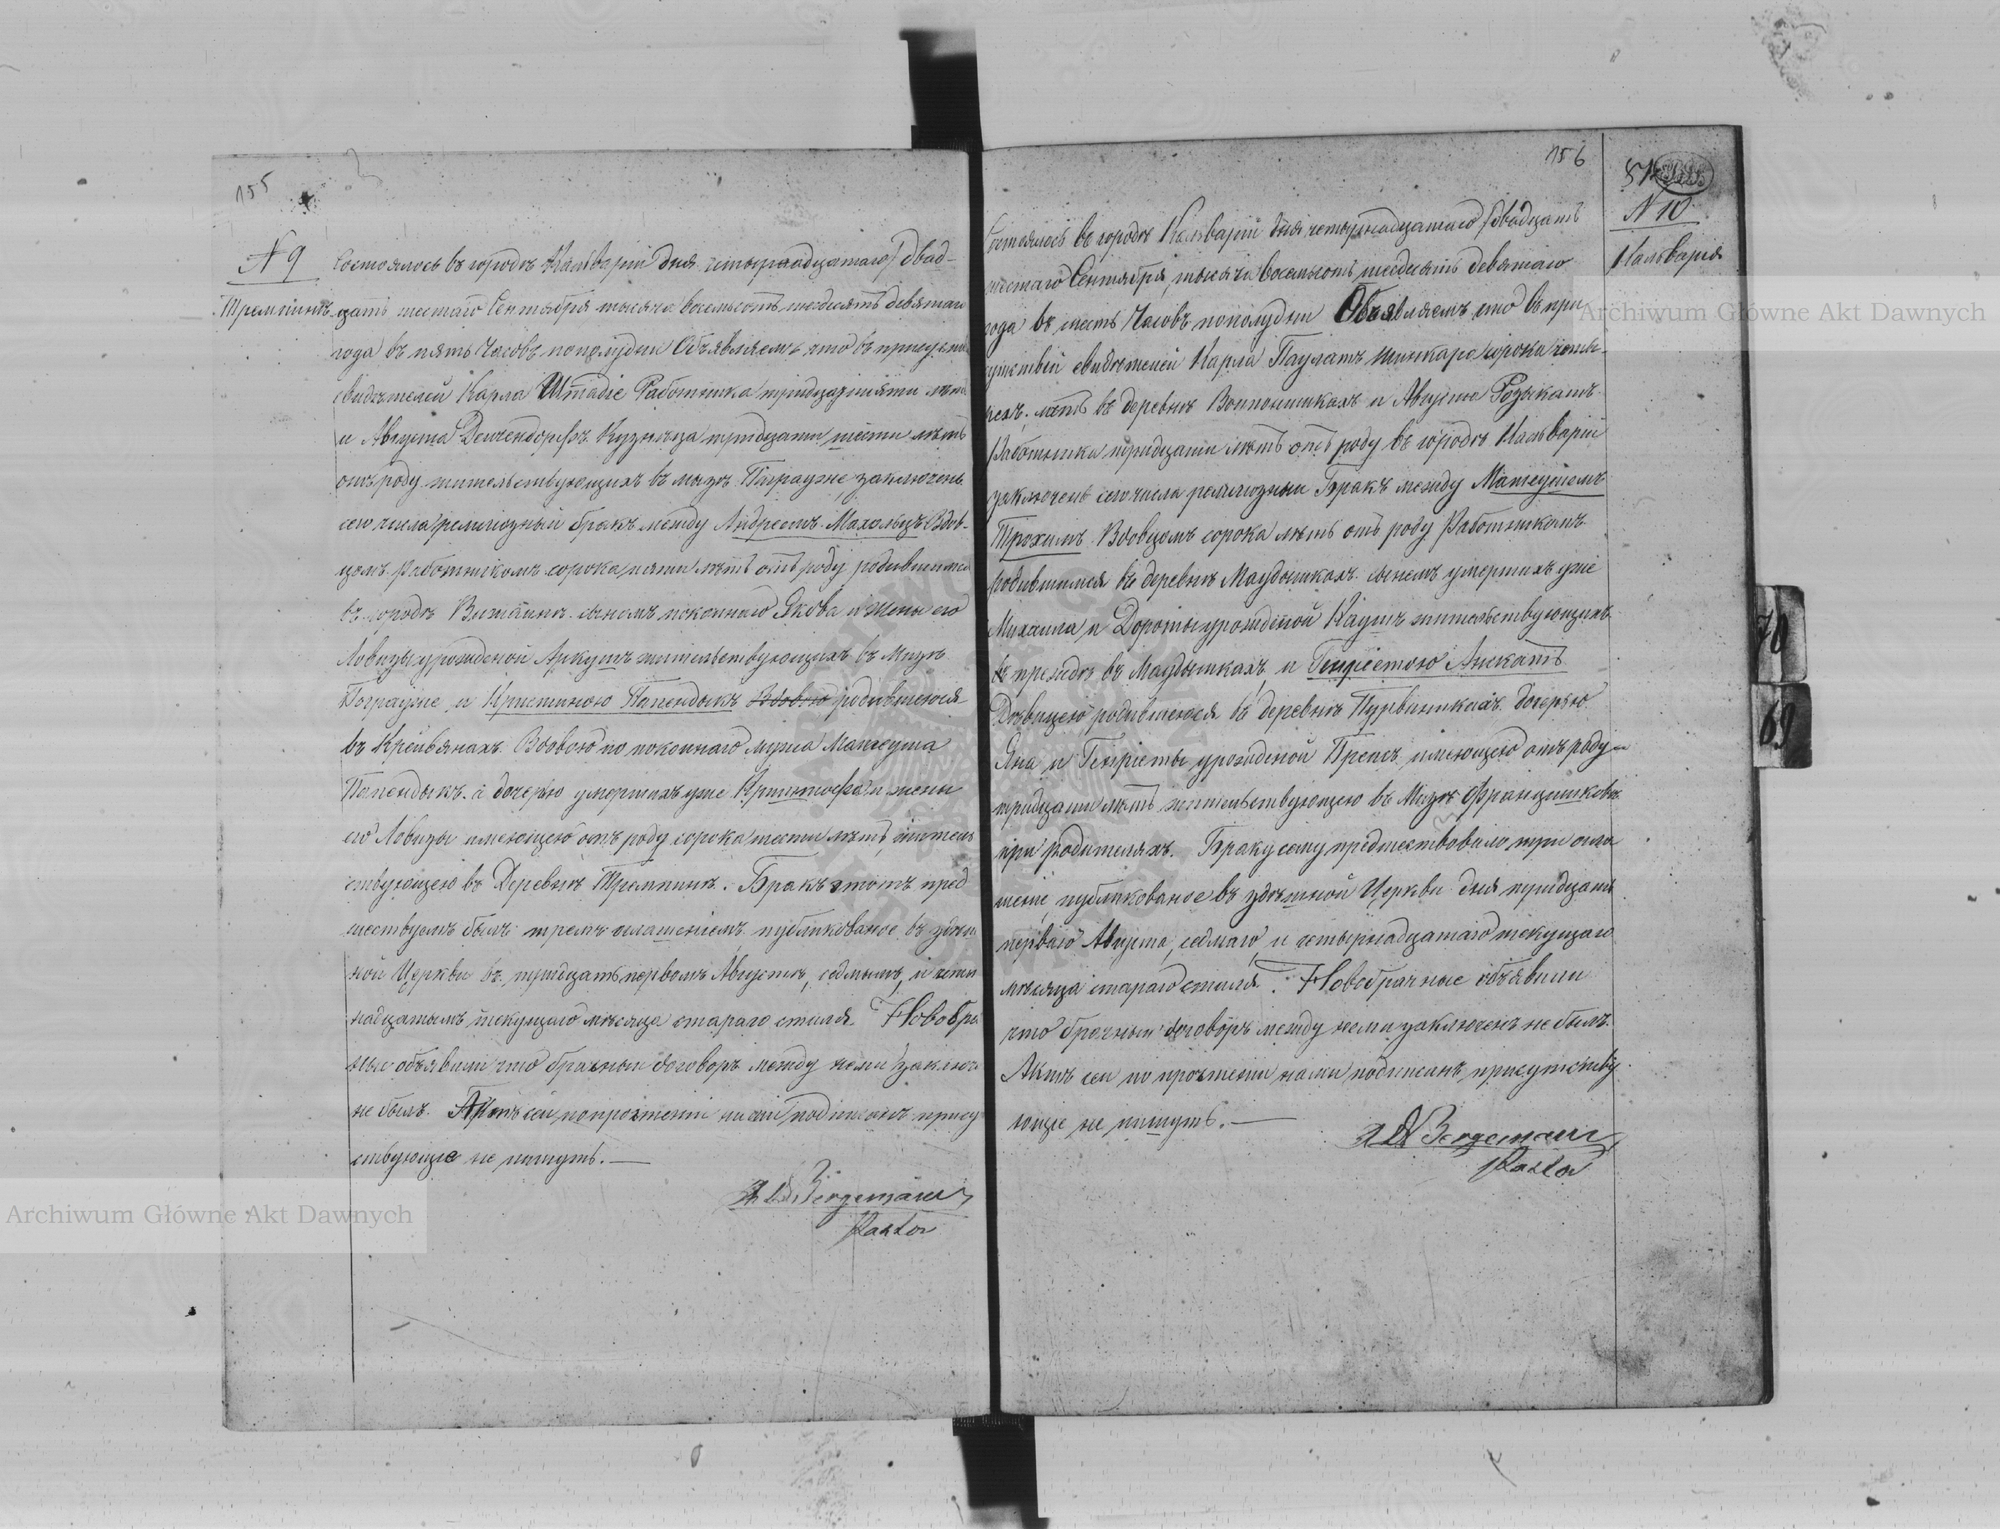 155
N 9
Тремпинъ
Состоялось въ городѣ Кальваріи дня четырнадцатаго двад-
цать шестаго Сентября тысяча восемьсотъ шесдесятъ девятаго
года въ пять часовъ пополудни Объявляемъ что въ присут
свидѣтелей Карла Работника тридцати пяти лѣтъ
и Августа Кузнеца тридцати шести лѣтъ
отъ роду жительствующихъ въ мызѣ Пограуже, заключенъ
сего числа религіозный бракъ между Андреемъ Махольцъ Вдов-
цомъ Работникомъ сорока пяти лѣтъ отъ роду родившимся
въ городѣ сыномъ покойнаго Якова и жены его
Ловизы урожденой Аркушъ жительствующихъ въ Мызѣ
Пограуже, и Кристиною Папендыкъ Вдовою родившеюся
въ Вдовою по покойнаго мужа Матеуша
Папендыкъ а дочерью умершихъ уже Криштофа и жены
его Ловизы имеющею отъ роду сорока шести лѣтъ, житель
ствующею въ Деревнѣ Тремпинъ. Бракъ этотъ пред
шествуемъ былъ тремъ оглашеніемъ публикованое въ здѣш
ной Церкви въ тридцать первомъ Августѣ, седмымъ, и четы
надцатымъ текущаго мѣсяца стараго стиля. Новобра
ные объявили что брачный договоръ между ними заключ
не былъ. Актъ сей по прочтеніи нами подписанъ прису
ствующіе не пишутъ.—
Bergemann
Pastor
156
N 10
Кальварія
Состоялось въ городѣ Кальваріи дня четырнадцатаго двадцать
шестаго Сентября, тысяча восемьсотъ шесдесятъ девятаго
года въ шесть часовъ пополудни Объявляемъ что въ при
сутствіи свидѣтелей Карла Паулатъ шинкаря сорока четы-
рехъ лѣтъ въ деревнѣ и Августа
Работника тридцати лѣтъ отъ роду въ городѣ Кальваріи
заключенъ сего числа религіозный Бракъ между Матеушемъ
Трохимъ Вдовцомъ сорока лѣтъ отъ роду Работникомъ
родившимся въ деревнѣ сыномъ умершихъ уже
Михаила и Дороты урожденой Каушъ жительствующихъ
въ и Генріетою Анскатъ
Дѣвицею родившеюся въ деревнѣ Пурвинишкахъ дочерью
Яна и Генріеты урожденой имеющею отъ роду
тридцати лѣтъ жительствующею въ Мызѣ Францишково
при родителяхъ. Браку сему предшествовало три огла
шеніе, публикованое въ здѣшной Церкви дня тридцать
перваго Августа, седмаго, и четырнадцатаго текущаго
мѣсяца стараго стиля. Новобрачные объявили
что брачный договоръ между ними заключенъ не былъ.
Актъ сей по прочтеніи нами подписанъ присутству
ющіе не пишутъ.—
Bergemann
Pastor
70
69
Archiwum Główne Akt Dawnych
Archiwum Główne Akt Dawnych